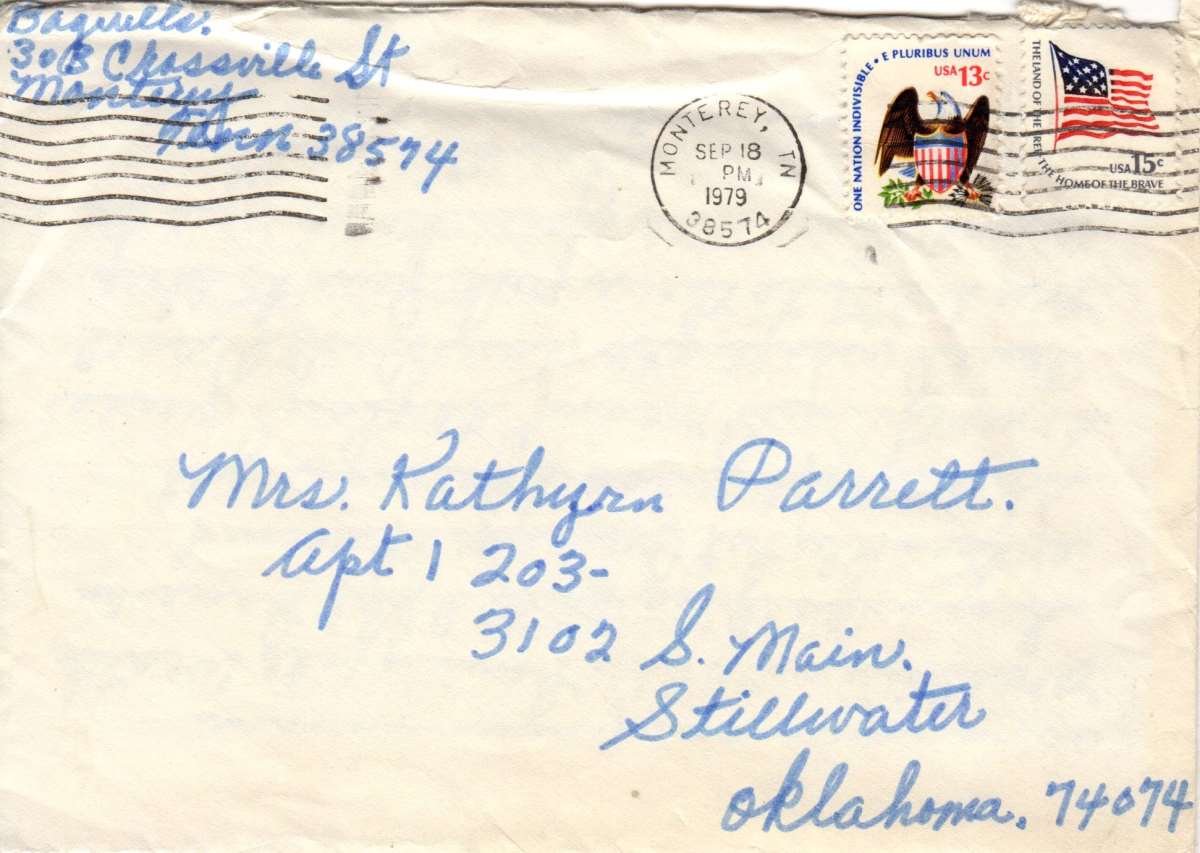 Bagwells.
303 Crossville St
Monterey
Tenn 38574
MONTEREY, TN
SEP 18
PM
1979
38574
ONE NATION INDIVISIBLE • E PLURIBUS UNUM
USA 13c
THE LAND OF THE FREE THE HOME OF THE BRAVE
USA 15c
Mrs. Kathyrn Parrett.
Apt 1 203-
3102 S. Main.
Stillwater
Oklahoma. 74074